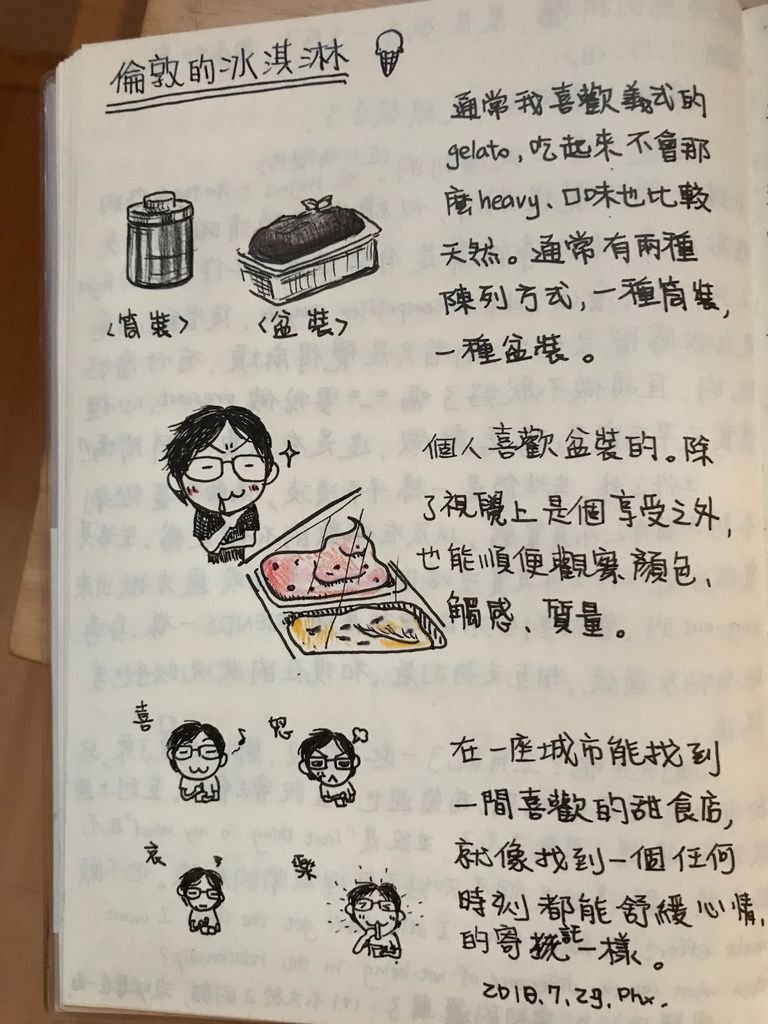 倫敦的冰淇淋
通常我喜歡義式的
gelato,吃起來不會那
麼heavy、口味也比較
天然。通常有兩種
陳列方式,一種筒裝,
一種盆裝。
<筒裝>
<盆裝>
個人喜歡盆裝的。除
了視覺上是個享受之外,
也能順便觀察顏色、
觸感、質量。
喜
怒
哀
樂
在一座城市能找到
一間喜歡的甜食店,
就像找到一個任何
時刻都能舒緩心情,
的寄託一樣。
2018.7.29.Phx.